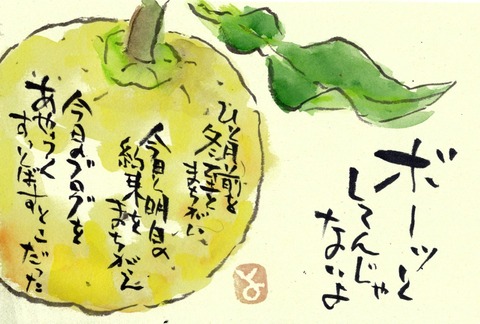 ボーッと
してんじゃ
ないよ
ひと月前を
冬至と
まちがい
今日と明日の
約束を
まちがえ
今日のブログを
あやうく
すっぽかすとこだった